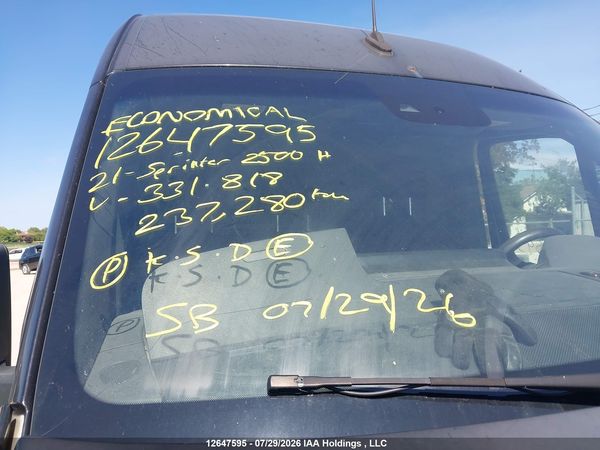 ECONOMICAL
12647595
21-Sprinter 2500 H
V-331.818
237,280 km
P K.S.D E
SB 07/29/26
12647595 - 07/29/2026 IAA Holdings , LLC